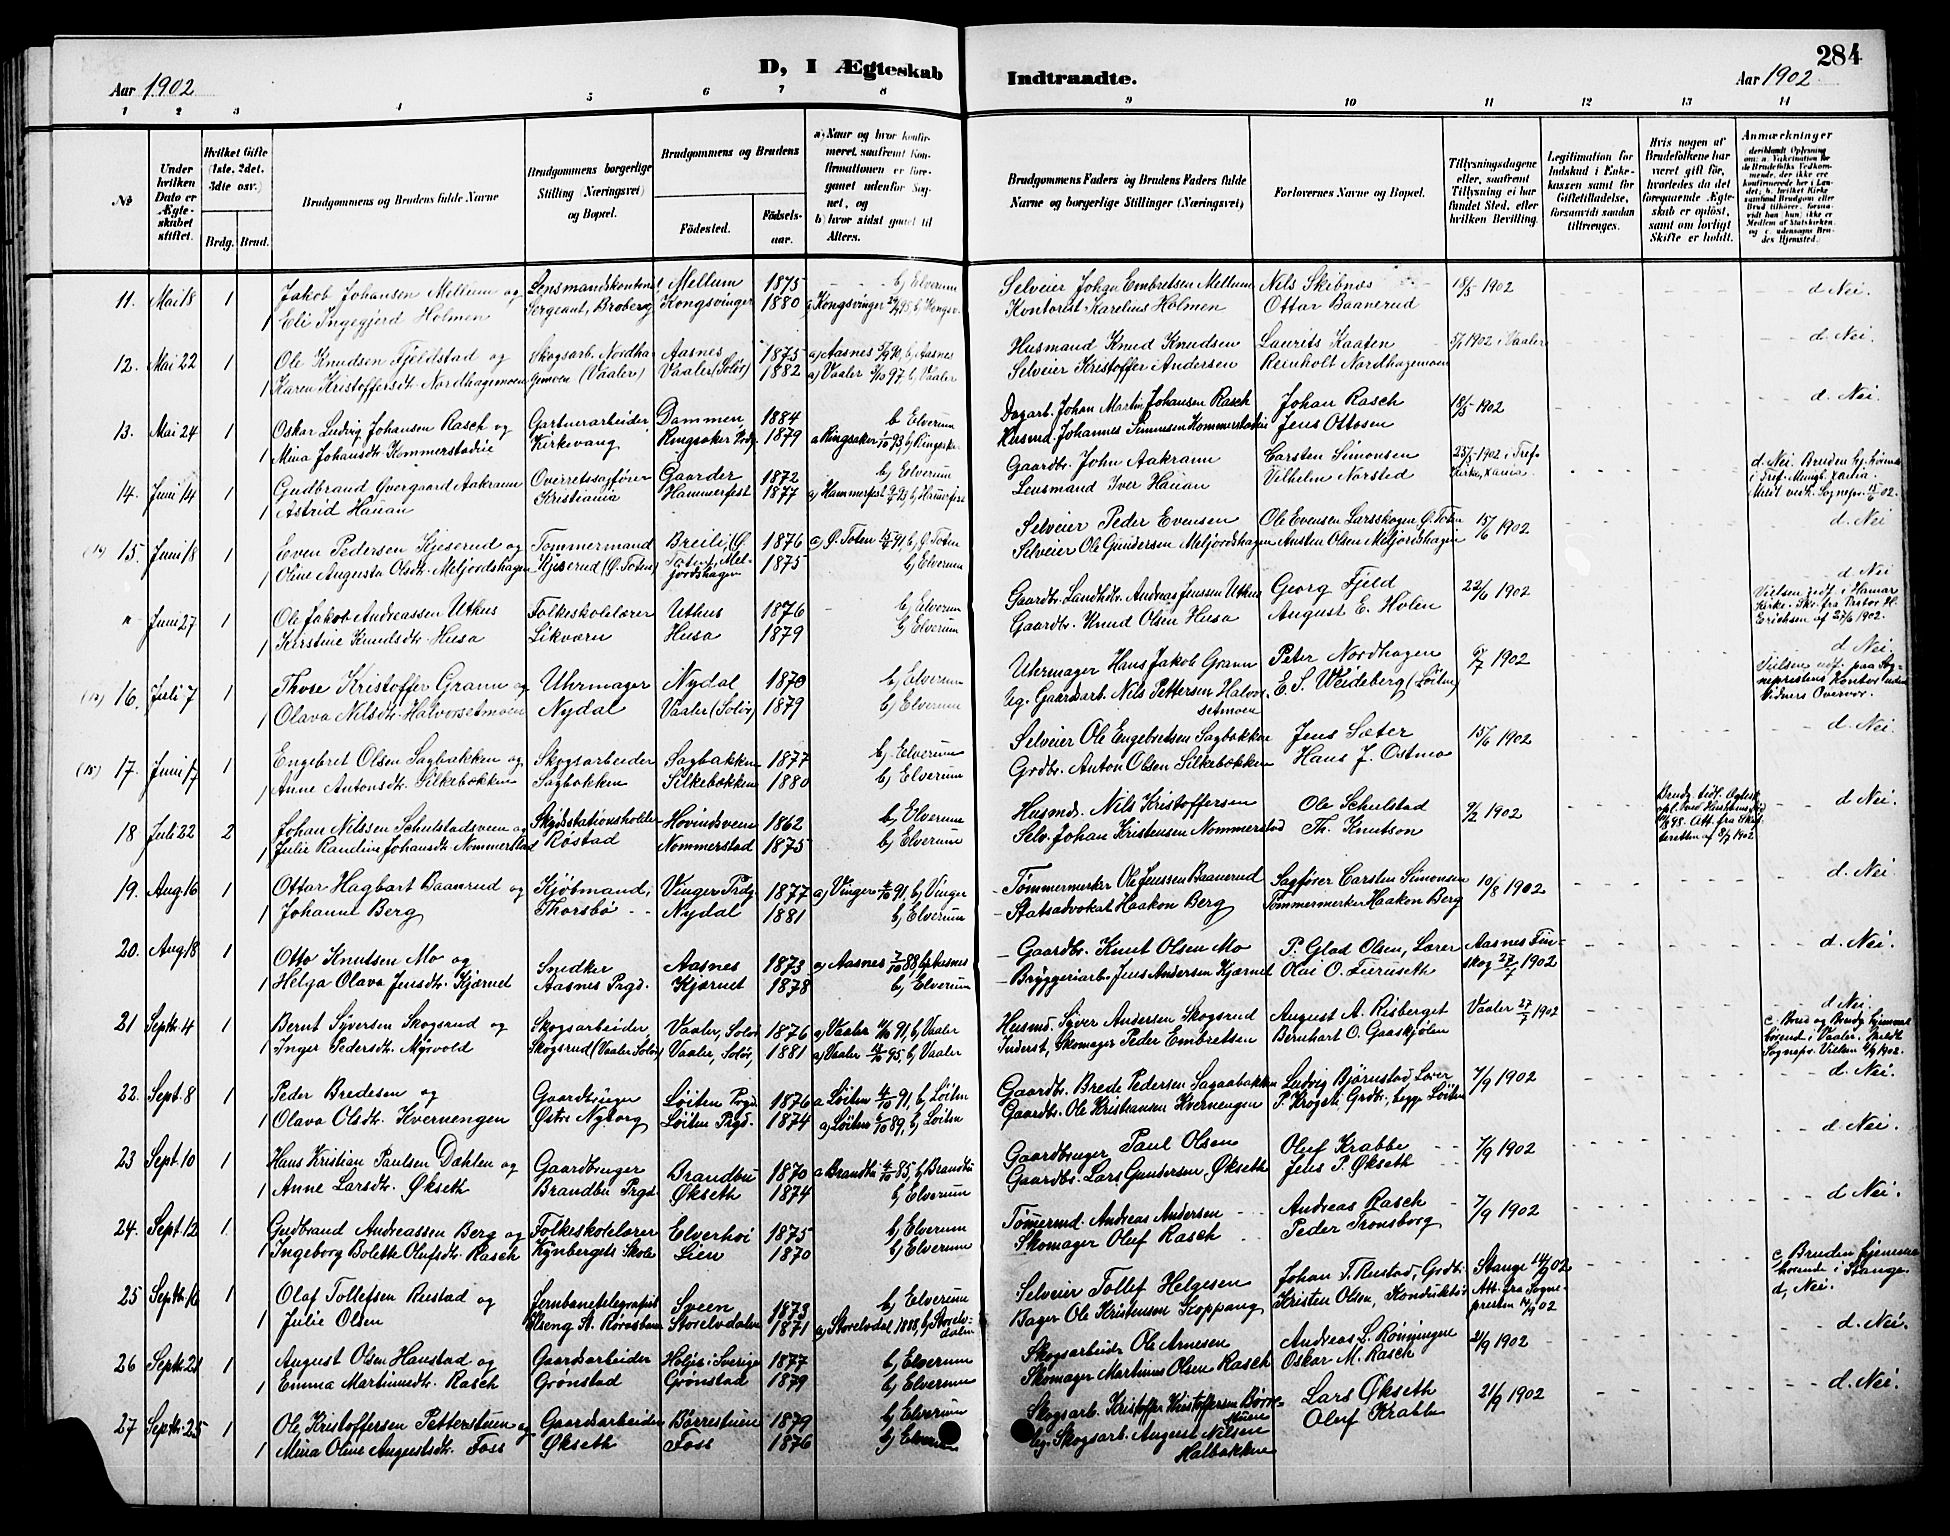 284
Aar 1902
D, I Ægteskab
Indtraadte.
Aar 1902
1 2 3 4 5 6 7 8 9 10 11 12 13 14
No
Under hvilken Dato er Ægteskabet stiftet.
Hvilket Gifte (1ste, 2det, 3die osv.)
Brdg. Brud.
Brudgommens og Brudens fulde Navne
Brudgommens borgerlige Stilling (Næringsvei) og Bopæl.
Brudgommens og Brudens
Fødested.
Fødselsaar.
a) Naar og hvor konfirmeret, saafremt Konfirmationen er foregaaet udenfor Sognet, og
b) hvor sidst gaaet til Alters.
Brudgommens Faders og Brudens Faders fulde Navne og borgerlige Stillinger (Næringsvei)
Forlovernes Navne og Bopæl.
Tillysningsdagene eller, saafremt Tillysning ei har fundet Sted, efter hvilken Bevilling.
Legitimation for Indskud i Enkekassen samt for Giftetilladelse, forsaavidt saadan tiltrænges.
Hvis nogen af Brudefolkene har været gift før, hvorledes da det foregaaende Ægteskab er opløst, samt om lovligt Skifte er holdt.
Anmærkninger
11. Mai 18 1 Jakob Johansen Mellum og Lensmandskontorist Mellum 1875 b) Elverum Selveier Johan Embretsen Mellum Nils Skibnes 18/5 1902 d Nei.
1 Eli Ingegjerd Holmen Sergeant, Broberg Kongsvinger 1880 a Kongsvinger 95, b, Kongsv. Kontorist Karelius Holmen Ottar Baanerud
12. Mai 22 1 Ole Knudsen Fjeldstad og Skogsarb. Nordha- Aasnes 1875 a) Aasnes 90, b, Aasnes Husmand Knud Knudsen Laurits Kaaten 1902 i Vaaler d Nei.
1 Karen Kristoffersdt. Nordhagemoen gemoen (Vaaler) Vaaler (Solør) 1882 a) Vaaler 97 b, Vaaler Selveier Kristoffer Andersen Reinholt Nordhagemoen
13. Mai 24 1 Oskar Ludvig Johansen Rasch og Gartnerarbeider Dammen 1884 b Elverum Dagarb. Johan Martin Johansen Rasch Johan Rasch 18/5 1902 d. Nei.
1 Mina Johansdt. Kommerstadeie Kirkevang Ringsaker Prdg. 1879 a Ringsaker 93, b, Ringsaker Husmd. Johannes Simensen Kommerstadeie Jens Ottosen
14. Juni 14 1 Gudbrand Overgaard Aakrann Overretssagfører Gaarder 1872 b, Elverum Gaardbr. John Aakrann Carsten Simonsen 25/5 1902 i Tref. Kirke, Xania d. Nei. Bruden hj. hørende i Tref. Mengh. Xania.
1 Astrid Hauan Kristiania Hammerfest 1877 a, Hammerfest 93 b, Hammerfest Lensmand Iver Hauan Vilhelm Norsted
15. Juni 18 1 Even Pedersen Kjeserud og Tømmermand Breili, (Ø. Toten) 1876 a Ø. Toten 91, b, Ø. Toten Selveier Peder Evensen Ole Evensen Larsskogen, Ø. Toten 15/6 1902 d Nei
1 Oline Augusta Olsdt. Meljordshagen Kjeserud (Ø. Toten) Meljordshagen 1875 b, Elverum Selveier Ole Gundersen Meljordshagen Austen Olsen Meljordshagen
" Juni 27 1 Ole Jakob Andreassen Uthus Folkeskolelærer Uthus 1876 b, Elverum Gaardbr. Landhdr. Andreas Jenssen Uthus Georg Fjeld 22/6 1902 d Nei Vielsen udf. i Hamar Kirke. Skr. fra Pastor H. Erichsen af 27/6 1902.
1 Kristine Knudsdt. Husa Likværn Husa 1879 b, Elverum Gaardbr. Knud Olsen Husa August E. Holen
16. Juli 7 1 Those Kristoffer Grann og Uhrmager Nydal 1870 b, Elverum Uhrmager Hans Jakob Grann Peter Nordhagen 6/7 1902 d Nei. Vielsen udf. paa Sognepræstens Kontor
1 Olava Nilsdt. Halvorsetmoen Nydal Vaaler (Solør) 1879 b, Elverum Ug. Gaardsarb. Nils Pettersen Halvorsetmoen E. S. Weideberg (Løiten)
(15) 17. Juni 17 1 Engebret Olsen Sagbakken og Skogsarbeider Sagbakken 1877 b, Elverum Selveier Ole Engebretsen Sagbakken Jens Sæter 15/6 1902 d. Nei.
1 Anne Antonsdt. Silkebækken Sagbakken Silkebækken 1880 b, Elverum Grdbr. Anton Olsen Silkebækken Hans J. Ostmo
18 Juli 22 2 Johan Nilssen Schulstadsveen og Skydsstationsholder Hovindsveen 1862 b, Elverum Husmd. Nils Kristoffersen Ole Schulstad 1902 d Nei.
1 Julie Randine Johansdt. Nommerstad Røstad Nommerstad 1875 b, Elverum Selv. Johan Kristensen Nommerstad Th. Knutson
19. Aug 16 1 Ottar Hagbart Baanrud og Kjøbmand, Vinger Prdg 1877 a, Vinger 91, b, Vinger Tømmermerker Ole Jenssen Baanerud Sagfører Carsten Simonsen 10/8 1902 d. Nei.
1 Johanne Berg Thorsbø Nydal 1881 b, Elverum Statsadvokat Haakon Berg Tømmermerker Haakon Berg
20. Aug 18 1 Otto Knutsen Mo og Snedker Aasnes 1873 a, Aasnes 88 b, Aasnes Gaardbr. Knut Olsen Mo P. Glad Olsen, Lærer Aasnes Finskog 27/7 1902 d. Nei.
1 Helga Olava Jensdt. Kjærnet Aasnes Prgd. Kjærnet 1878 b, Elverum Bryggeriarb. Jens Andersen Kjærnet Olai O. Furuseth
21 Septb. 4 1 Bernt Syversen Skogsrud og Skogsarbeider, Vaaler, Solør 1876 a, Vaaler 91, b, Vaaler Husmd. Syver Andersen Skogsrud August A. Risberget Vaaler 27/7 1902 d Nei.
1 Inger Pedersdt. Myrvold Skogsrud (Vaaler Solør) Vaaler, Solør, 1881 a, Vaaler 95, b, Vaaler Inderst, Skomager Peder Embretsen Bernhart O. Gaaskjølen
22. Sept. 8 1 Peder Bredesen og Gaardbruger Løiten Prgd. 1876 a Løiten 91, b, Løiten Gaardbr. Brede Pedersen Sagaabakken Ludvig Bjørnstad, Lærer 7/9 1902 d. Nei.
1 Olava Olsdt. Kvernengen Østre Nyborg Løiten Prgd. 1874 a, Løiten 89, b, Løiten Gaardbr. Ole Kristiansen Kvernengen P. Krogsti, Grdbr.
23 Sept. 10 1 Hans Kristian Paulsen Dæhlen og Gaardbruger Brandbu 1870 a Brandbu 85, b, Brandbu Gaardbruger Paul Olsen Oluf Krabbe 7/9 1902 d. Nei.
1 Anne Larsdt. Økseth Brandbu Prgd. Økseth 1874 b, Elverum Gaardbr. Lars Gundersen Økseth Jens P. Økseth
24. Sept. 12 1 Gudbrand Andreassen Berg og Folkeskolelærer Elverhøi 1875 b, Elverum Tømermd. Andreas Andersen Andreas Rasch 7/9 1902 d Nei.
1 Ingeborg Bolette Olufsdt. Rasch Kynbergets Skole Lien 1870 b, Elverum Skomager Oluf Rasch Peder Tronsborg
25 Septb. 16 1 Olaf Tollefsen Rustad og Jernbanetelegrafist Sveen 1873 b, Elverum Selveier Tollef Helgesen Johan T. Rustad, Grdbr. Stange 14/9 02 c, Bruden hjemmehørende i Stange. d, Nei.
1 Julie Olsen Elseng St. Rørosbanen Storelvdalen 1871 a, Storelvdal 1888, b, Storelvdalen Bager Ole Kristensen Koppang Kristen Olsen, Konduktør Att. fra Sognepresten 02
26 Septb. 21 1 August Olsen Haustad og Gaardsarbeider Holjes i Sverige 1877 b, Elverum Skogsarbeidr. Ole Arnesen Andreas L. Rønningen 21/9 1902 d. Nei.
1 Emma Martinusdt. Rasch Grønstad Grønstad 1879 b, Elverum Skomager Martinus Olsen Rasch Oskar M. Rasch
27 Septb. 25 1 Ole Kristoffersen Petterstuen og Gaardsarbeider Børrestuen 1879 b, Elverum Skogsarb. Kristoffer Kristoffersen Børrestuen Lars Økseth 21/9 1902 d. Nei.
1 Mina Oline Augustsdt. Foss Økseth Foss 1876 b, Elverum Ug. Skogsarb. August Nilsen Halbakken Oluf Krabbe